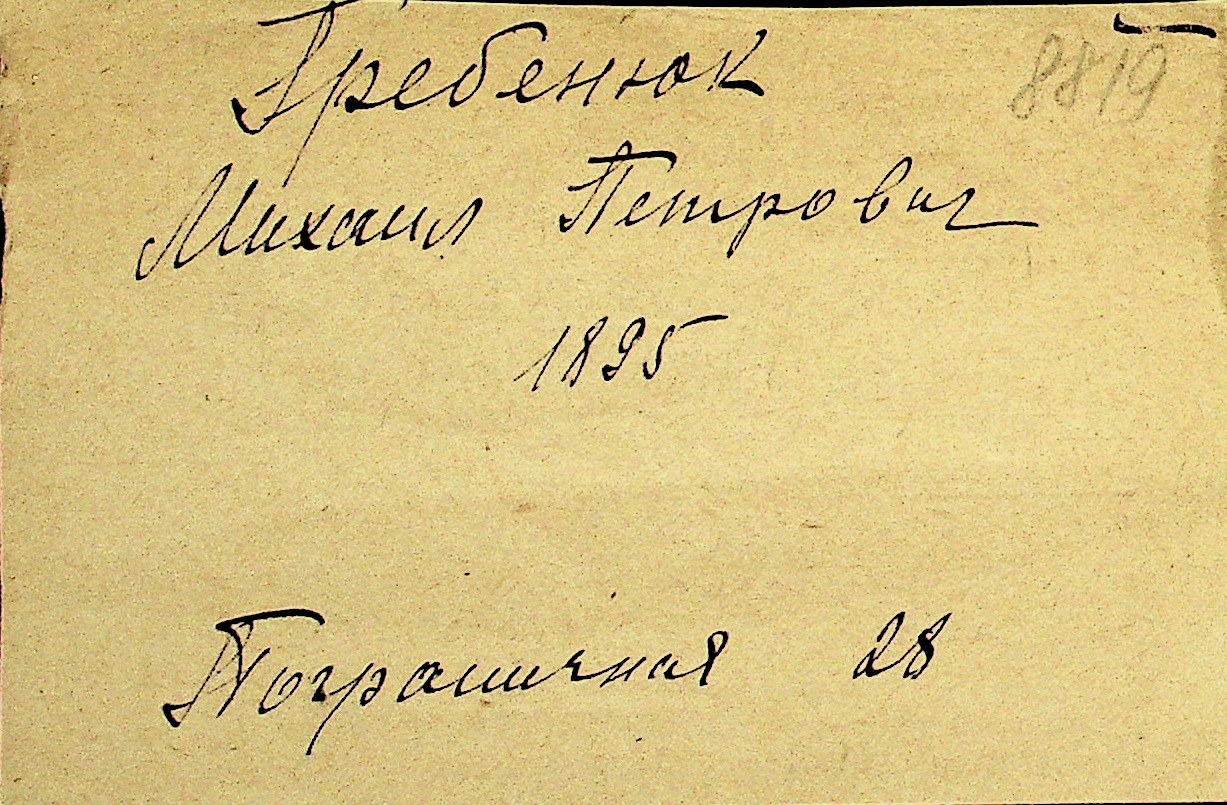 Гребенюк 8819
Михаил Петрович
1895
Пограничная 28